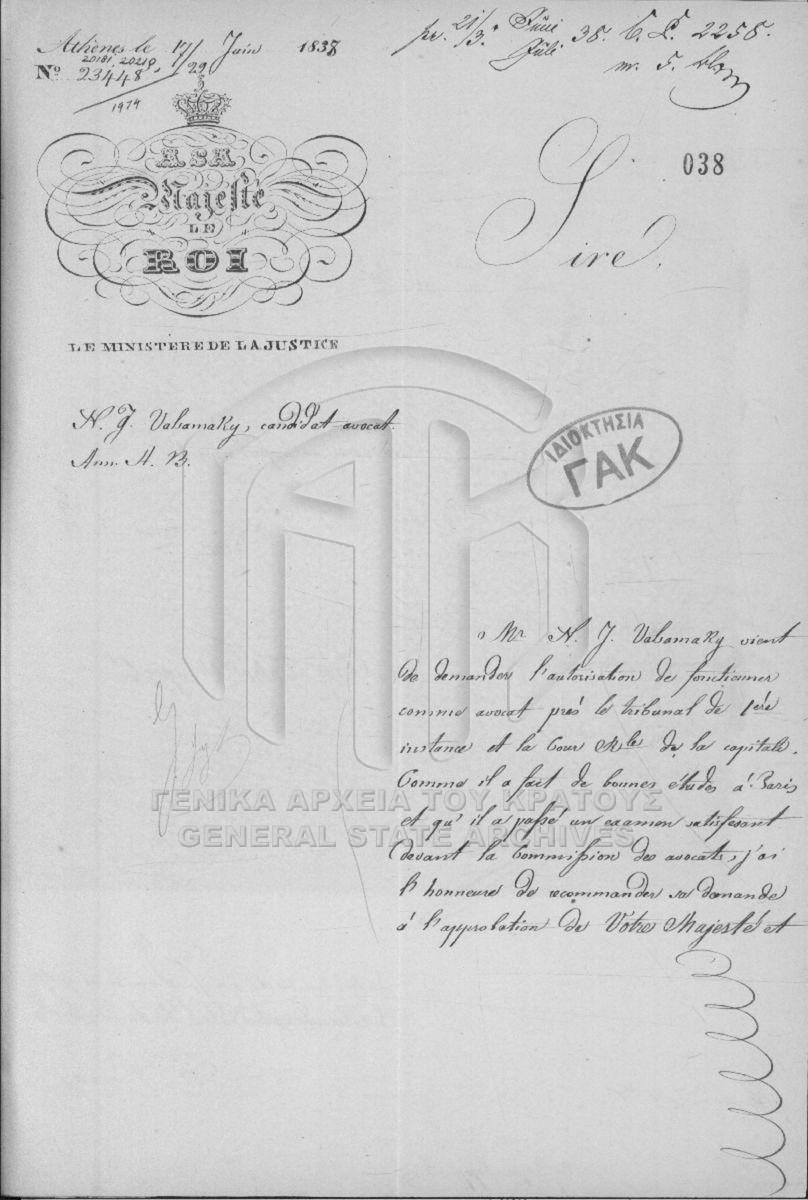 Athènes le 17/29 Juin 1838
20181, 20219,
Nº 23448
1974
pr. 21/3. Juni/Juli 38. C. P. 2258.
m. 5.
038
A SA
Majesté
LE
ROI
Sire,
LE MINISTERE DE LA JUSTICE
N. J. Valamaky, candidat avocat.
Ann. A. B.
ΙΔΙΟΚΤΗΣΙΑ
ΓΑΚ
Mr N. J. Valamaky vient
de demander l'autorisation de fonctionner
comme avocat près le tribunal de 1ère
instance et la Cour Rle de la capitale.
Comme il a fait de bonnes études à Paris
et qu'il a passé un examen satisfesant
devant la Commission des avocats, j'ai
l'honneure de recommander sa demande
à l'approbation de Vôtre Majesté et
ΓΕΝΙΚΑ ΑΡΧΕΙΑ ΤΟΥ ΚΡΑΤΟΥΣ
GENERAL STATE ARCHIVES